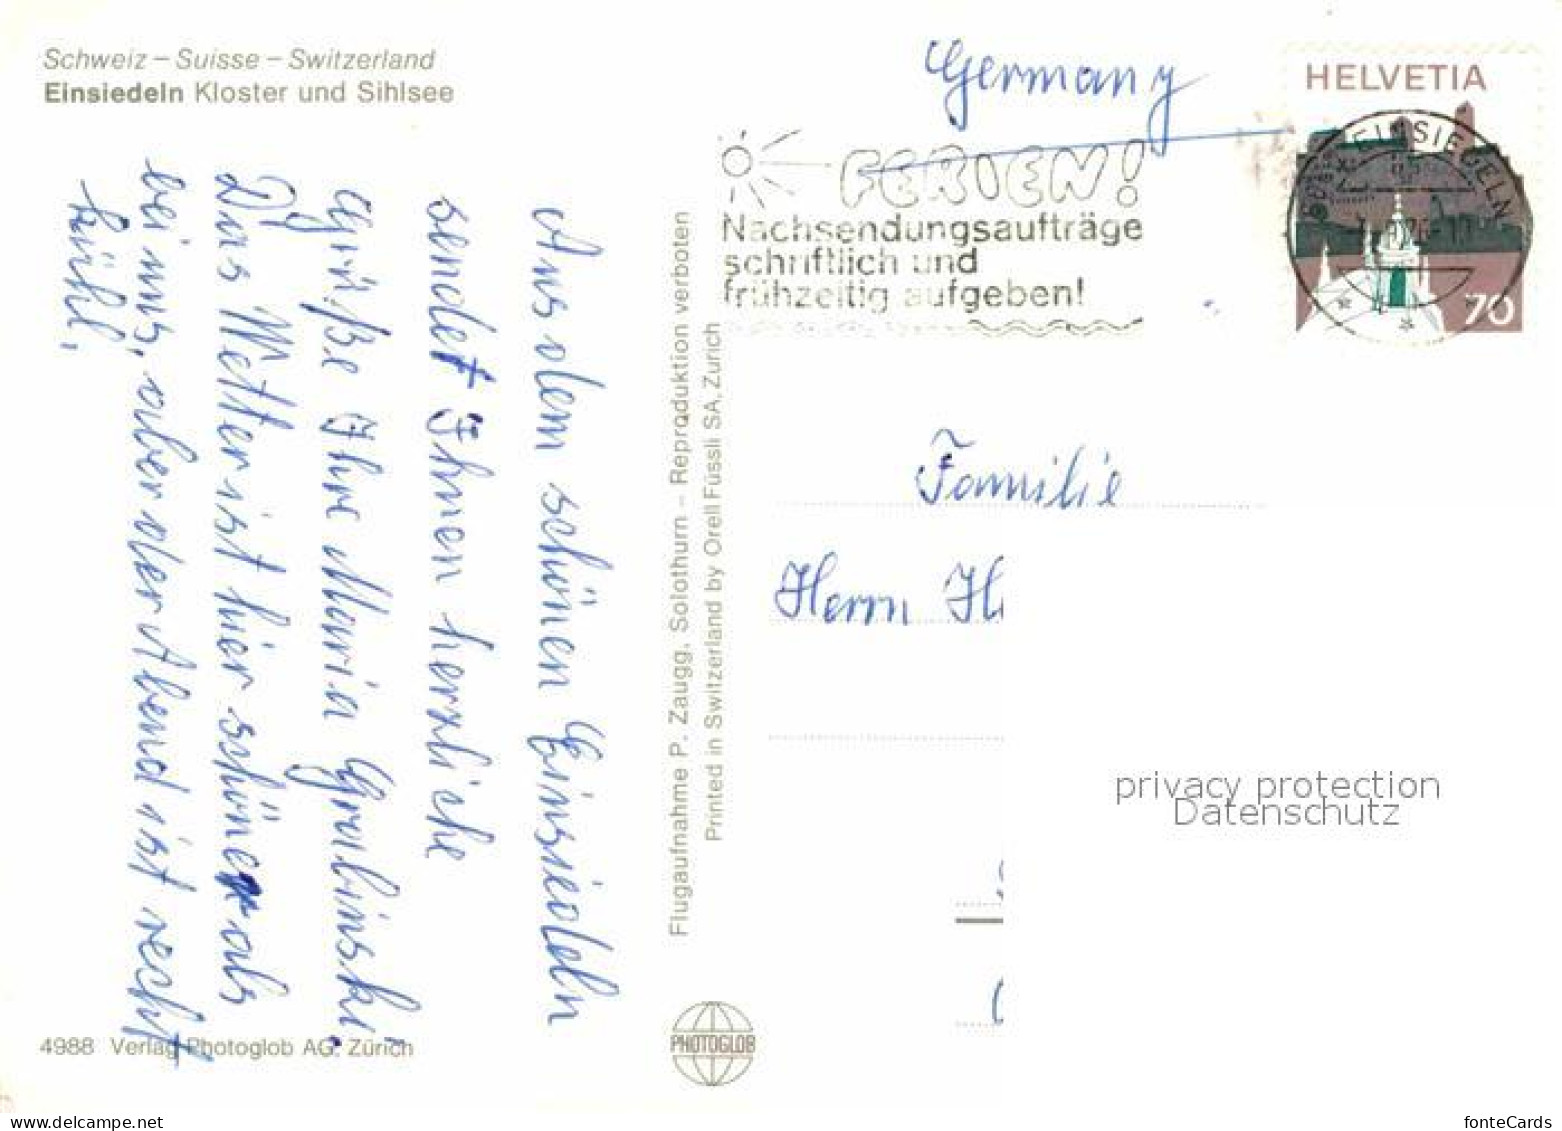 Schweiz – Suisse – Switzerland
Einsiedeln Kloster und Sihlsee
Aus dem schönen Einsiedeln
sendet Ihnen herzliche
Grüße Ihre Maria Grabinski.
Das Wetter ist hier schöner als
bei uns, aber der Abend ist recht
kühl.
4988 Verlag Photoglob AG, Zürich
Flugaufnahme P. Zaugg, Solothurn – Reproduktion verboten
Printed in Switzerland by Orell Füssli SA, Zürich
PHOTOGLOB
Germany
FERIEN!
Nachsendungsaufträge
schriftlich und
frühzeitig aufgeben!
HELVETIA
EINSIEDELN
70
Familie
Herrn
privacy protection
Datenschutz
www.delcampe.net
fonteCards